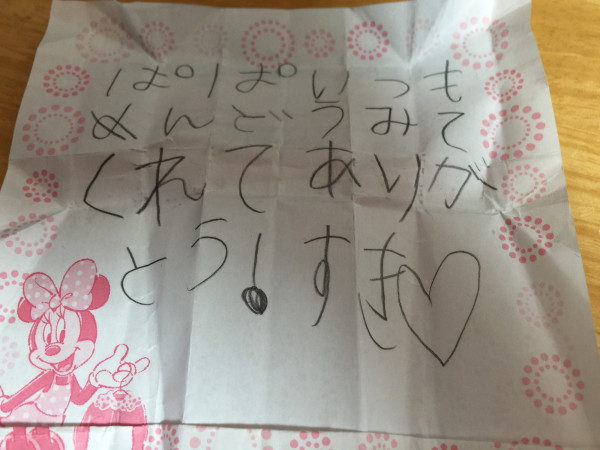 ぱぱいつも
めんどうみて
くれてありが
とう!すき♡